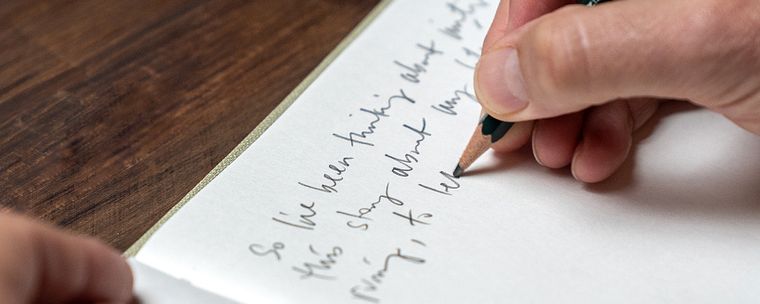 So I've been thinking about
this story about my
to le